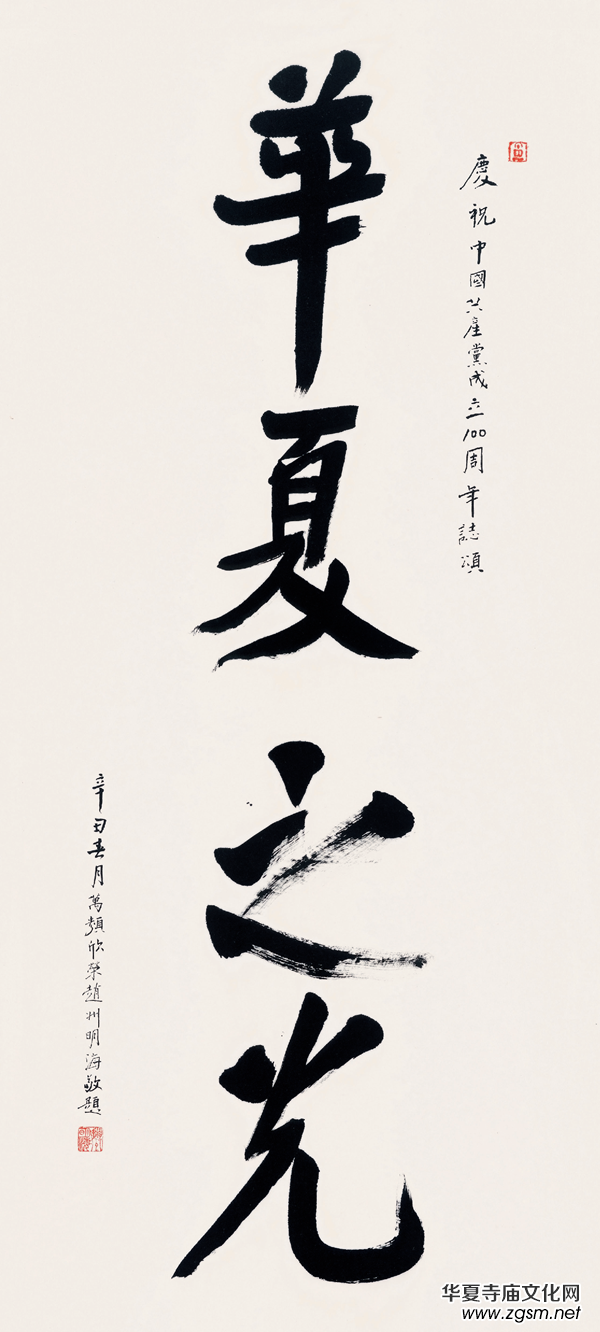 慶祝中國共產黨成立100周年誌頌
華夏之光
辛丑春月萬類欣榮趙州明海敬題
华夏寺庙文化网
www.zgsm.net